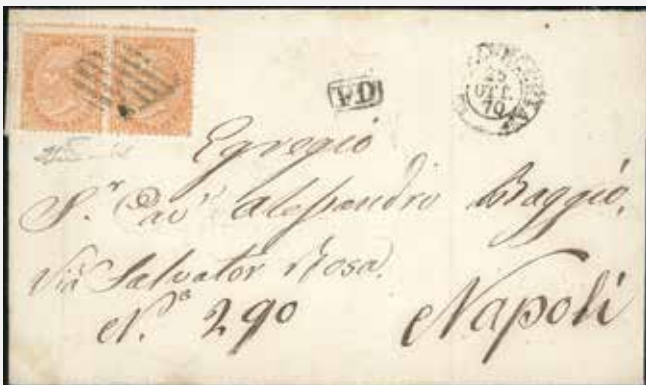 P.D.
25
OTT.
70
Egregio
S.r Cav.r Alessandro Baggio,
Via Salvator Rosa.
N.o 290 Napoli